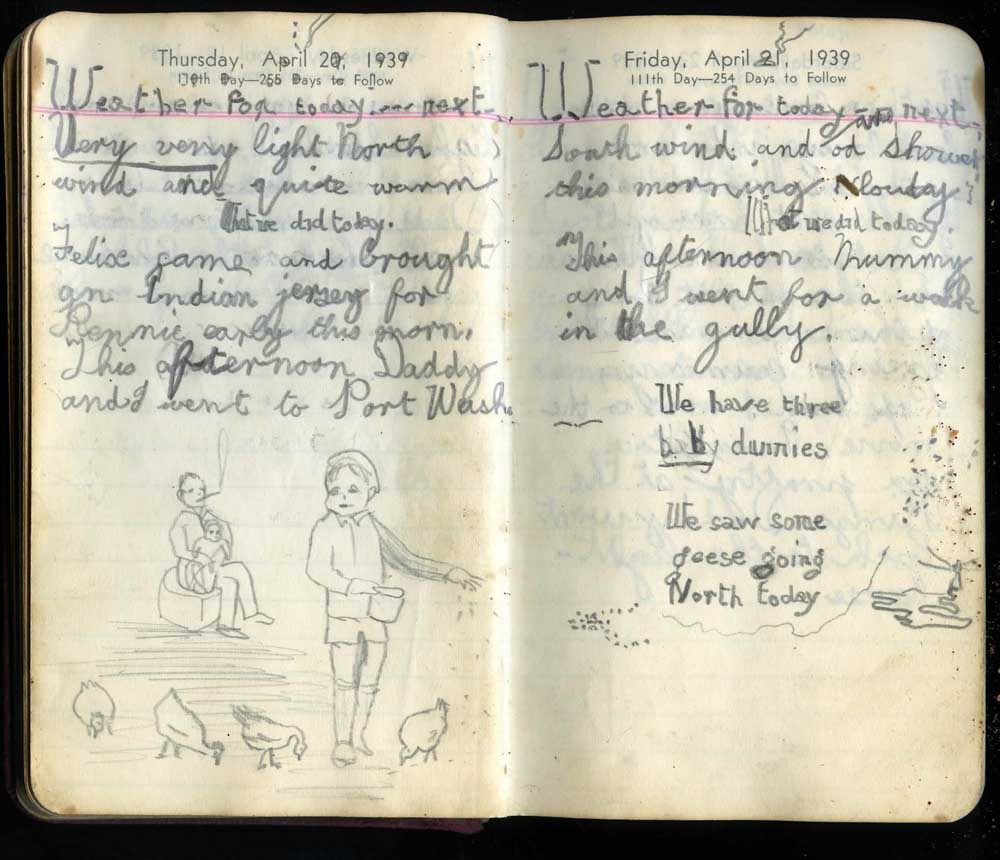 Thursday, April 20, 1939
110th Day—255 Days to Follow
Weather for today and next.
Very very light North
wind and quite warm
What we did today.
Felix came and brought
an Indian jersey for
early this morn.
This afternoon Daddy
and I went to Port Wash.
Friday, April 21, 1939
111th Day—254 Days to Follow
Weather for today and next.
South wind and od shower
this morning. Clouday
What we did today.
This afternoon Mummy
and I went for a walk
in the gully.
We have three
baby dunnies
We saw some
geese going
North today